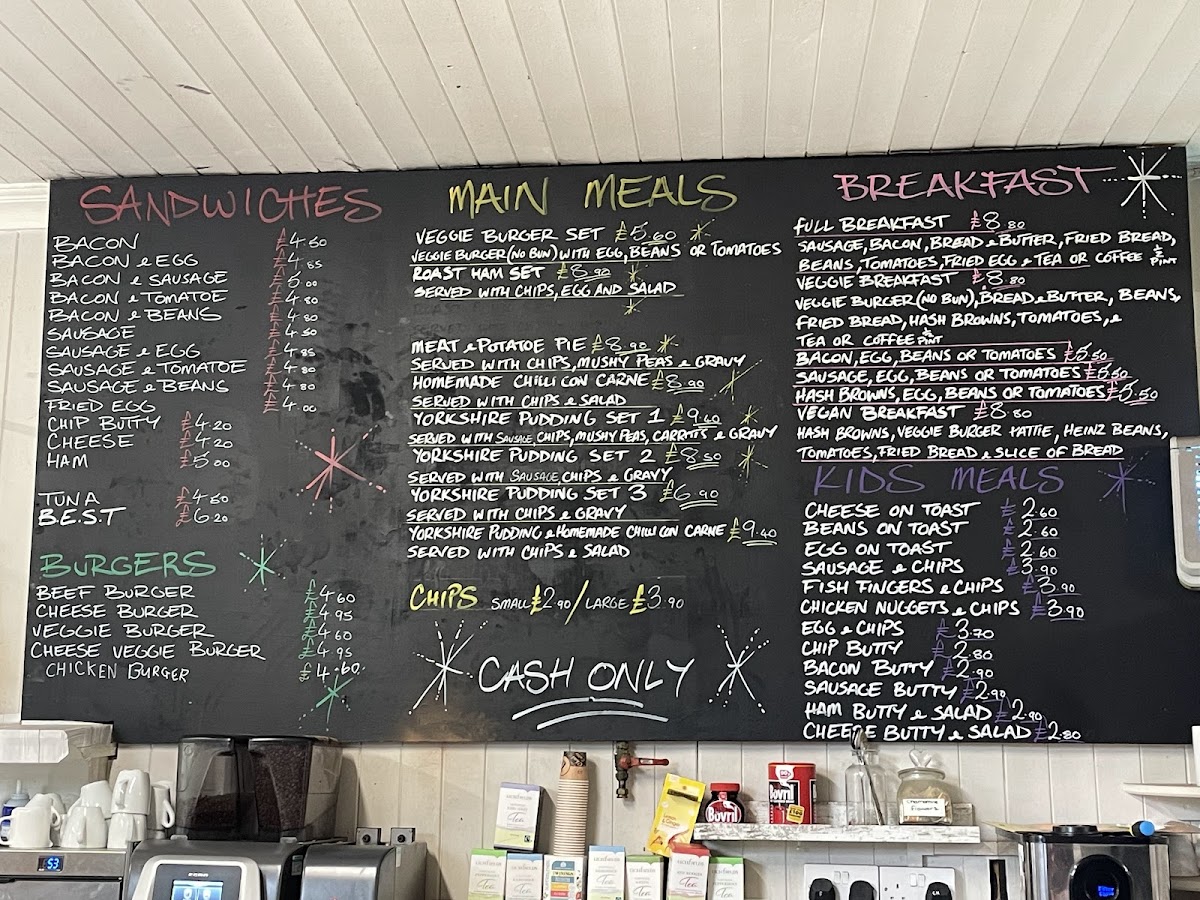 SANDWICHES
BACON £4.60
BACON & EGG £4.85
BACON & SAUSAGE £5.00
BACON & TOMATOE £4.80
BACON & BEANS £4.80
SAUSAGE £4.50
SAUSAGE & EGG £4.85
SAUSAGE & TOMATOE £4.80
SAUSAGE & BEANS £4.80
FRIED EGG £4.00
CHIP BUTTY £4.20
CHEESE £4.20
HAM £5.00
TUNA £4.50
B.E.S.T £6.20
BURGERS
BEEF BURGER £4.60
CHEESE BURGER £4.95
VEGGIE BURGER £4.60
CHEESE VEGGIE BURGER £4.95
CHICKEN BURGER £4.60
MAIN MEALS
VEGGIE BURGER SET £5.60
VEGGIE BURGER (NO BUN) WITH EGG, BEANS OR TOMATOES
ROAST HAM SET £8.90
SERVED WITH CHIPS, EGG AND SALAD
MEAT & POTATOE PIE £8.90
SERVED WITH CHIPS, MUSHY PEAS & GRAVY
HOMEMADE CHILLI CON CARNE £8.90
SERVED WITH CHIPS & SALAD
YORKSHIRE PUDDING SET 1 £9.60
SERVED WITH SAUSAGE, CHIPS, MUSHY PEAS, CARROTS & GRAVY
YORKSHIRE PUDDING SET 2 £8.50
SERVED WITH SAUSAGE, CHIPS & GRAVY
YORKSHIRE PUDDING SET 3 £6.90
SERVED WITH CHIPS & GRAVY
YORKSHIRE PUDDING & HOMEMADE CHILLI CON CARNE £9.40
SERVED WITH CHIPS & SALAD
CHIPS SMALL £2.90 / LARGE £3.90
CASH ONLY
BREAKFAST
FULL BREAKFAST £8.80
SAUSAGE, BACON, BREAD & BUTTER, FRIED BREAD,
BEANS, TOMATOES, FRIED EGG & TEA OR COFFEE ½ PINT
VEGGIE BREAKFAST £8.80
VEGGIE BURGER (NO BUN), BREAD & BUTTER, BEANS,
FRIED BREAD, HASH BROWNS, TOMATOES, &
TEA OR COFFEE ½ PINT
BACON, EGG, BEANS OR TOMATOES £5.50
SAUSAGE, EGG, BEANS OR TOMATOES £5.50
HASH BROWNS, EGG, BEANS OR TOMATOES £5.50
VEGAN BREAKFAST £8.80
HASH BROWNS, VEGGIE BURGER PATTIE, HEINZ BEANS,
TOMATOES, FRIED BREAD & SLICE OF BREAD
KIDS MEALS
CHEESE ON TOAST £2.60
BEANS ON TOAST £2.60
EGG ON TOAST £2.60
SAUSAGE & CHIPS £3.90
FISH FINGERS & CHIPS £3.90
CHICKEN NUGGETS & CHIPS £3.90
EGG & CHIPS £3.70
CHIP BUTTY £2.80
BACON BUTTY £2.90
SAUSAGE BUTTY £2.90
HAM BUTTY & SALAD £2.90
CHEESE BUTTY & SALAD £2.80
Bovril
Bovril
Tea
Tea
Tea
Tea
Tea
Tea
53